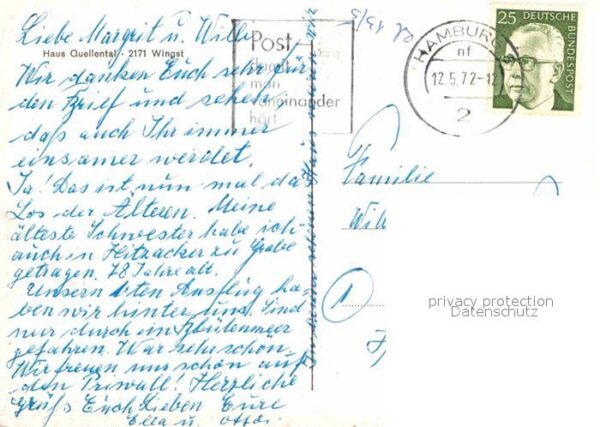 Liebe Margrit u. Willi
Haus Quellental · 2171 Wingst
Wir danken Euch sehr für
den Brief und sehen
daß auch Ihr immer
einsamer werdet,
Ja! Das ist nun mal das
Los der Älteren. Meine
älteste Schwester habe ich
auch in Hitzacker zu Grabe
getragen. 78 Jahre alt.
Unsern 1ten Ausflug ha-
ben wir hinter uns. Sind
nur durch ein Blütenmeer
gefahren. War sehr schön.
Wir freuen uns schon auf
den Priwall! Herzliche
Grüße Euch Lieben Eure
Ella u. Otto.
Post
damit
man
voneinander
hört
HAMBURG
nf
12.5.72-12
2
25 DEUTSCHE
BUNDESPOST
Familie
Will
privacy protection
Datenschutz